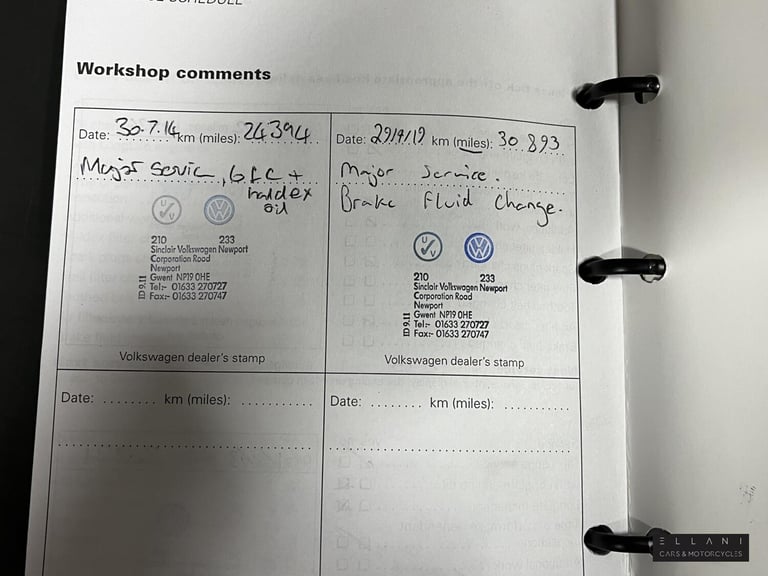 Workshop comments
Date: 30.7.14 km (miles): 24394
Major Service, bfc +
haldex
oil
210 233
Sinclair Volkswagen Newport
Corporation Road
Newport
Gwent NP19 0HE
Tel:- 01633 270727
Fax:- 01633 270747
ID 9.11
Volkswagen dealer's stamp
Date: 29/9/19 km (miles): 30.893
Major Service.
Brake Fluid Change.
210 233
Sinclair Volkswagen Newport
Corporation Road
Newport
Gwent NP19 0HE
Tel:- 01633 270727
Fax:- 01633 270747
ID 9.11
Volkswagen dealer's stamp
Date: ........ km (miles): ...........
Date: ........ km (miles): ...........
ELLANI
CARS & MOTORCYCLES